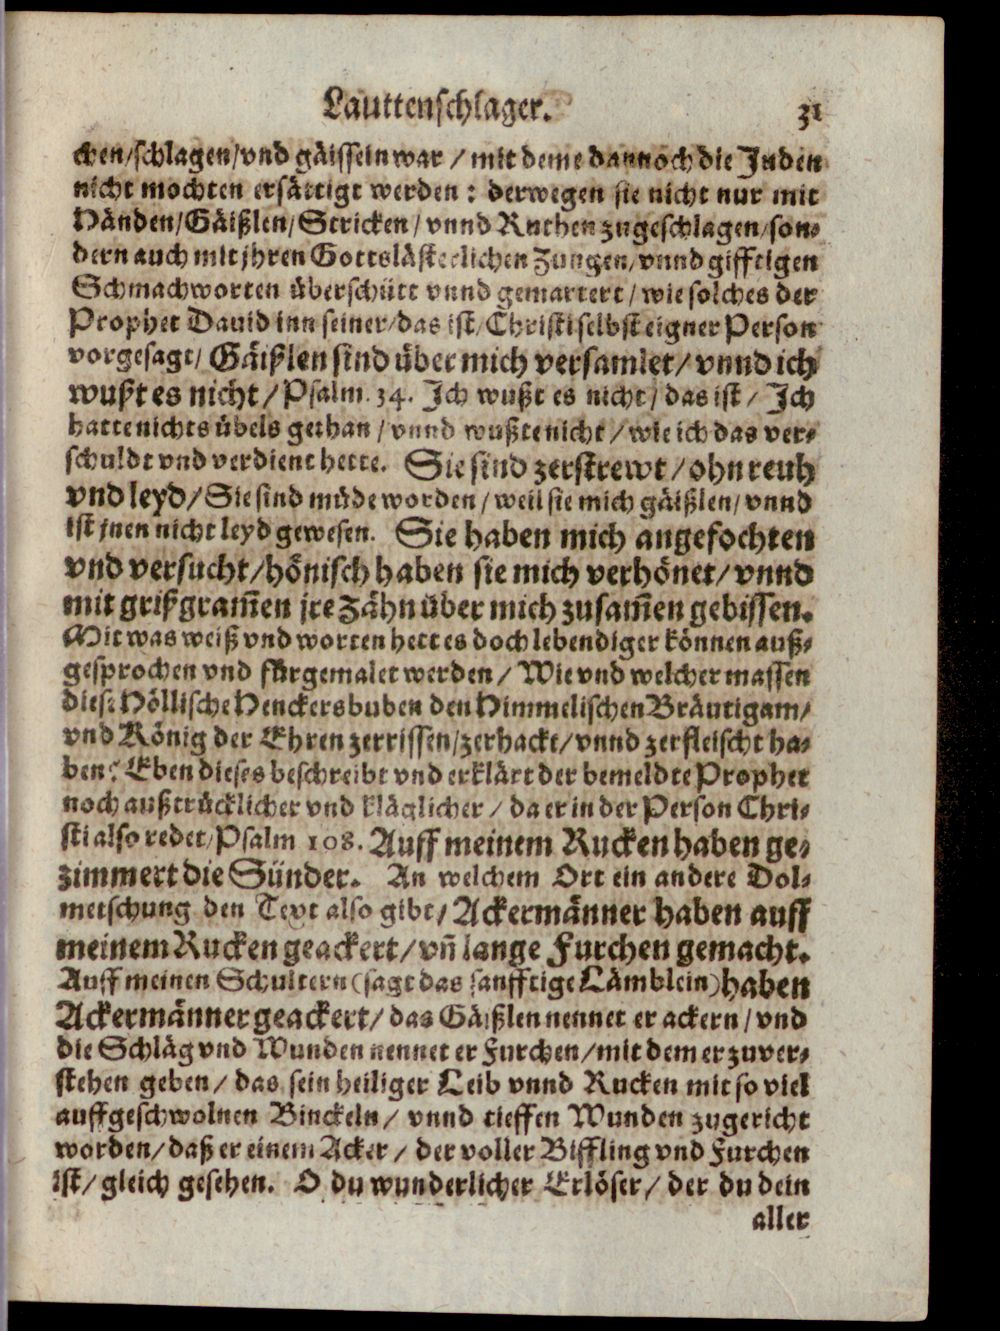 Lauttenschlager. 31
chen/schlagen/vnd gäisseln war / mit deme dannoch die Juden
nicht mochten ersättigt werden: derwegen sie nicht nur mit
Händen/Gäißlen/Stricken/ vnnd Ruthen zugeschlagen/son⸗
dern auch mit jhren Gottslästerlichen Zungen/vnnd gifftigen
Schmachworten überschütt vnnd gemartert/ wie solches der
Prophet Dauid inn seiner/das ist/Christi selbst eigner Person
vorgesagt/ Gäißlen sind über mich versamlet/ vnnd ich
wußt es nicht/ Psalm. 34. Ich wußt es nicht/ das ist/ Ich
hatte nichts übels gethan/ vnnd wußte nicht/ wie ich das ver⸗
schuldt vnd verdient hette. Sie sind zerstrewt/ ohn reuh
vnd leyd/ Sie sind müde worden/ weil sie mich gäißlen/ vnnd
ist jnen nicht leyd gewesen. Sie haben mich angefochten
vnd versucht/ hönisch haben sie mich verhönet/ vnnd
mit grißgram̃en jre Zähn über mich zusam̃en gebissen.
Mit was weiß vnd worten hett es doch lebendiger können auß⸗
gesprochen vnd fürgemalet werden/ Wie vnd welcher massen
diese Höllische Henckersbuben den Himmelischen Bräutigam/
vnd König der Ehren zerrissen/zerhackt/ vnnd zerfleischt ha⸗
ben? Eben dieses beschreibt vnd erklärt der bemeldte Prophet
noch außtrücklicher vnd kläglicher/ da er in der Person Chri⸗
sti also redet/Psalm 108. Auff meinem Rucken haben ge⸗
zimmert die Sünder. An welchem Ort ein andere Dol⸗
metschung den Text also gibt/ Ackermänner haben auff
meinem Rucken geackert/ vñ lange Furchen gemacht.
Auff meinen Schultern (sagt das sanfftige Lämblein) haben
Ackermänner geackert/ das Gäißlen nennet er ackern/ vnd
die Schläg vnd Wunden nennet er Furchen/mit dem er zuver⸗
stehen geben/ das sein heiliger Leib vnnd Rucken mit so viel
auffgeschwolnen Binckeln/ vnnd tieffen Wunden zugericht
worden/ daß er einem Acker/ der voller Biffling vnd Furchen
ist/ gleich gesehen. O du wunderlicher Erlöser/ der du dein
aller